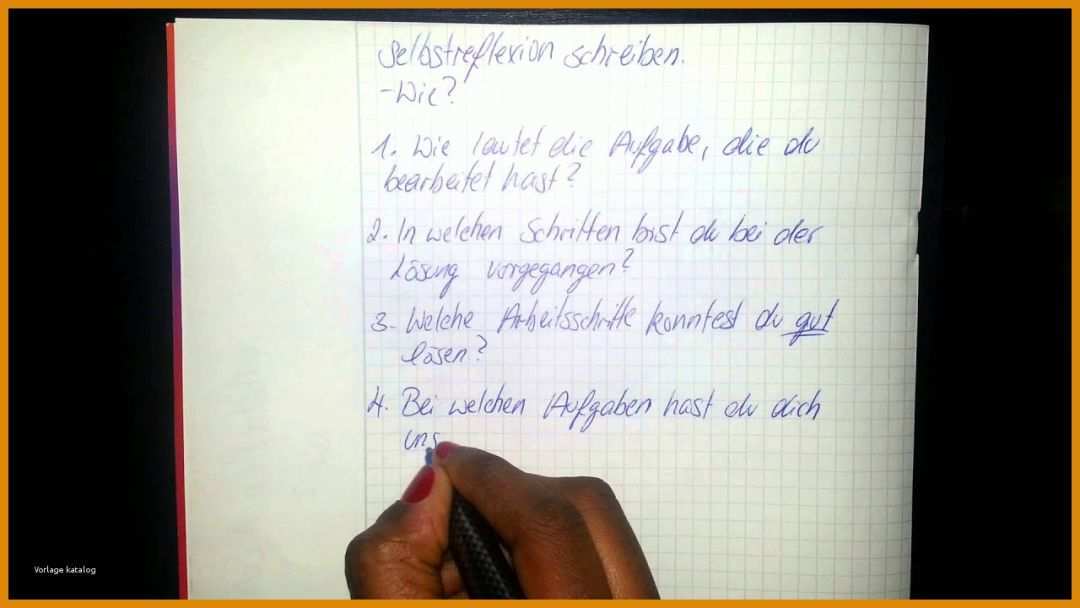 Selbstreflexion schreiben.
-Wie?
1. Wie lautet die Aufgabe, die du
bearbeitet hast?
2. In welchen Schritten bist du bei der
Lösung vorgegangen?
3. Welche Arbeitsschritte konntest du gut
lösen?
4. Bei welchen Aufgaben hast du dich
uns
Vorlage katalog